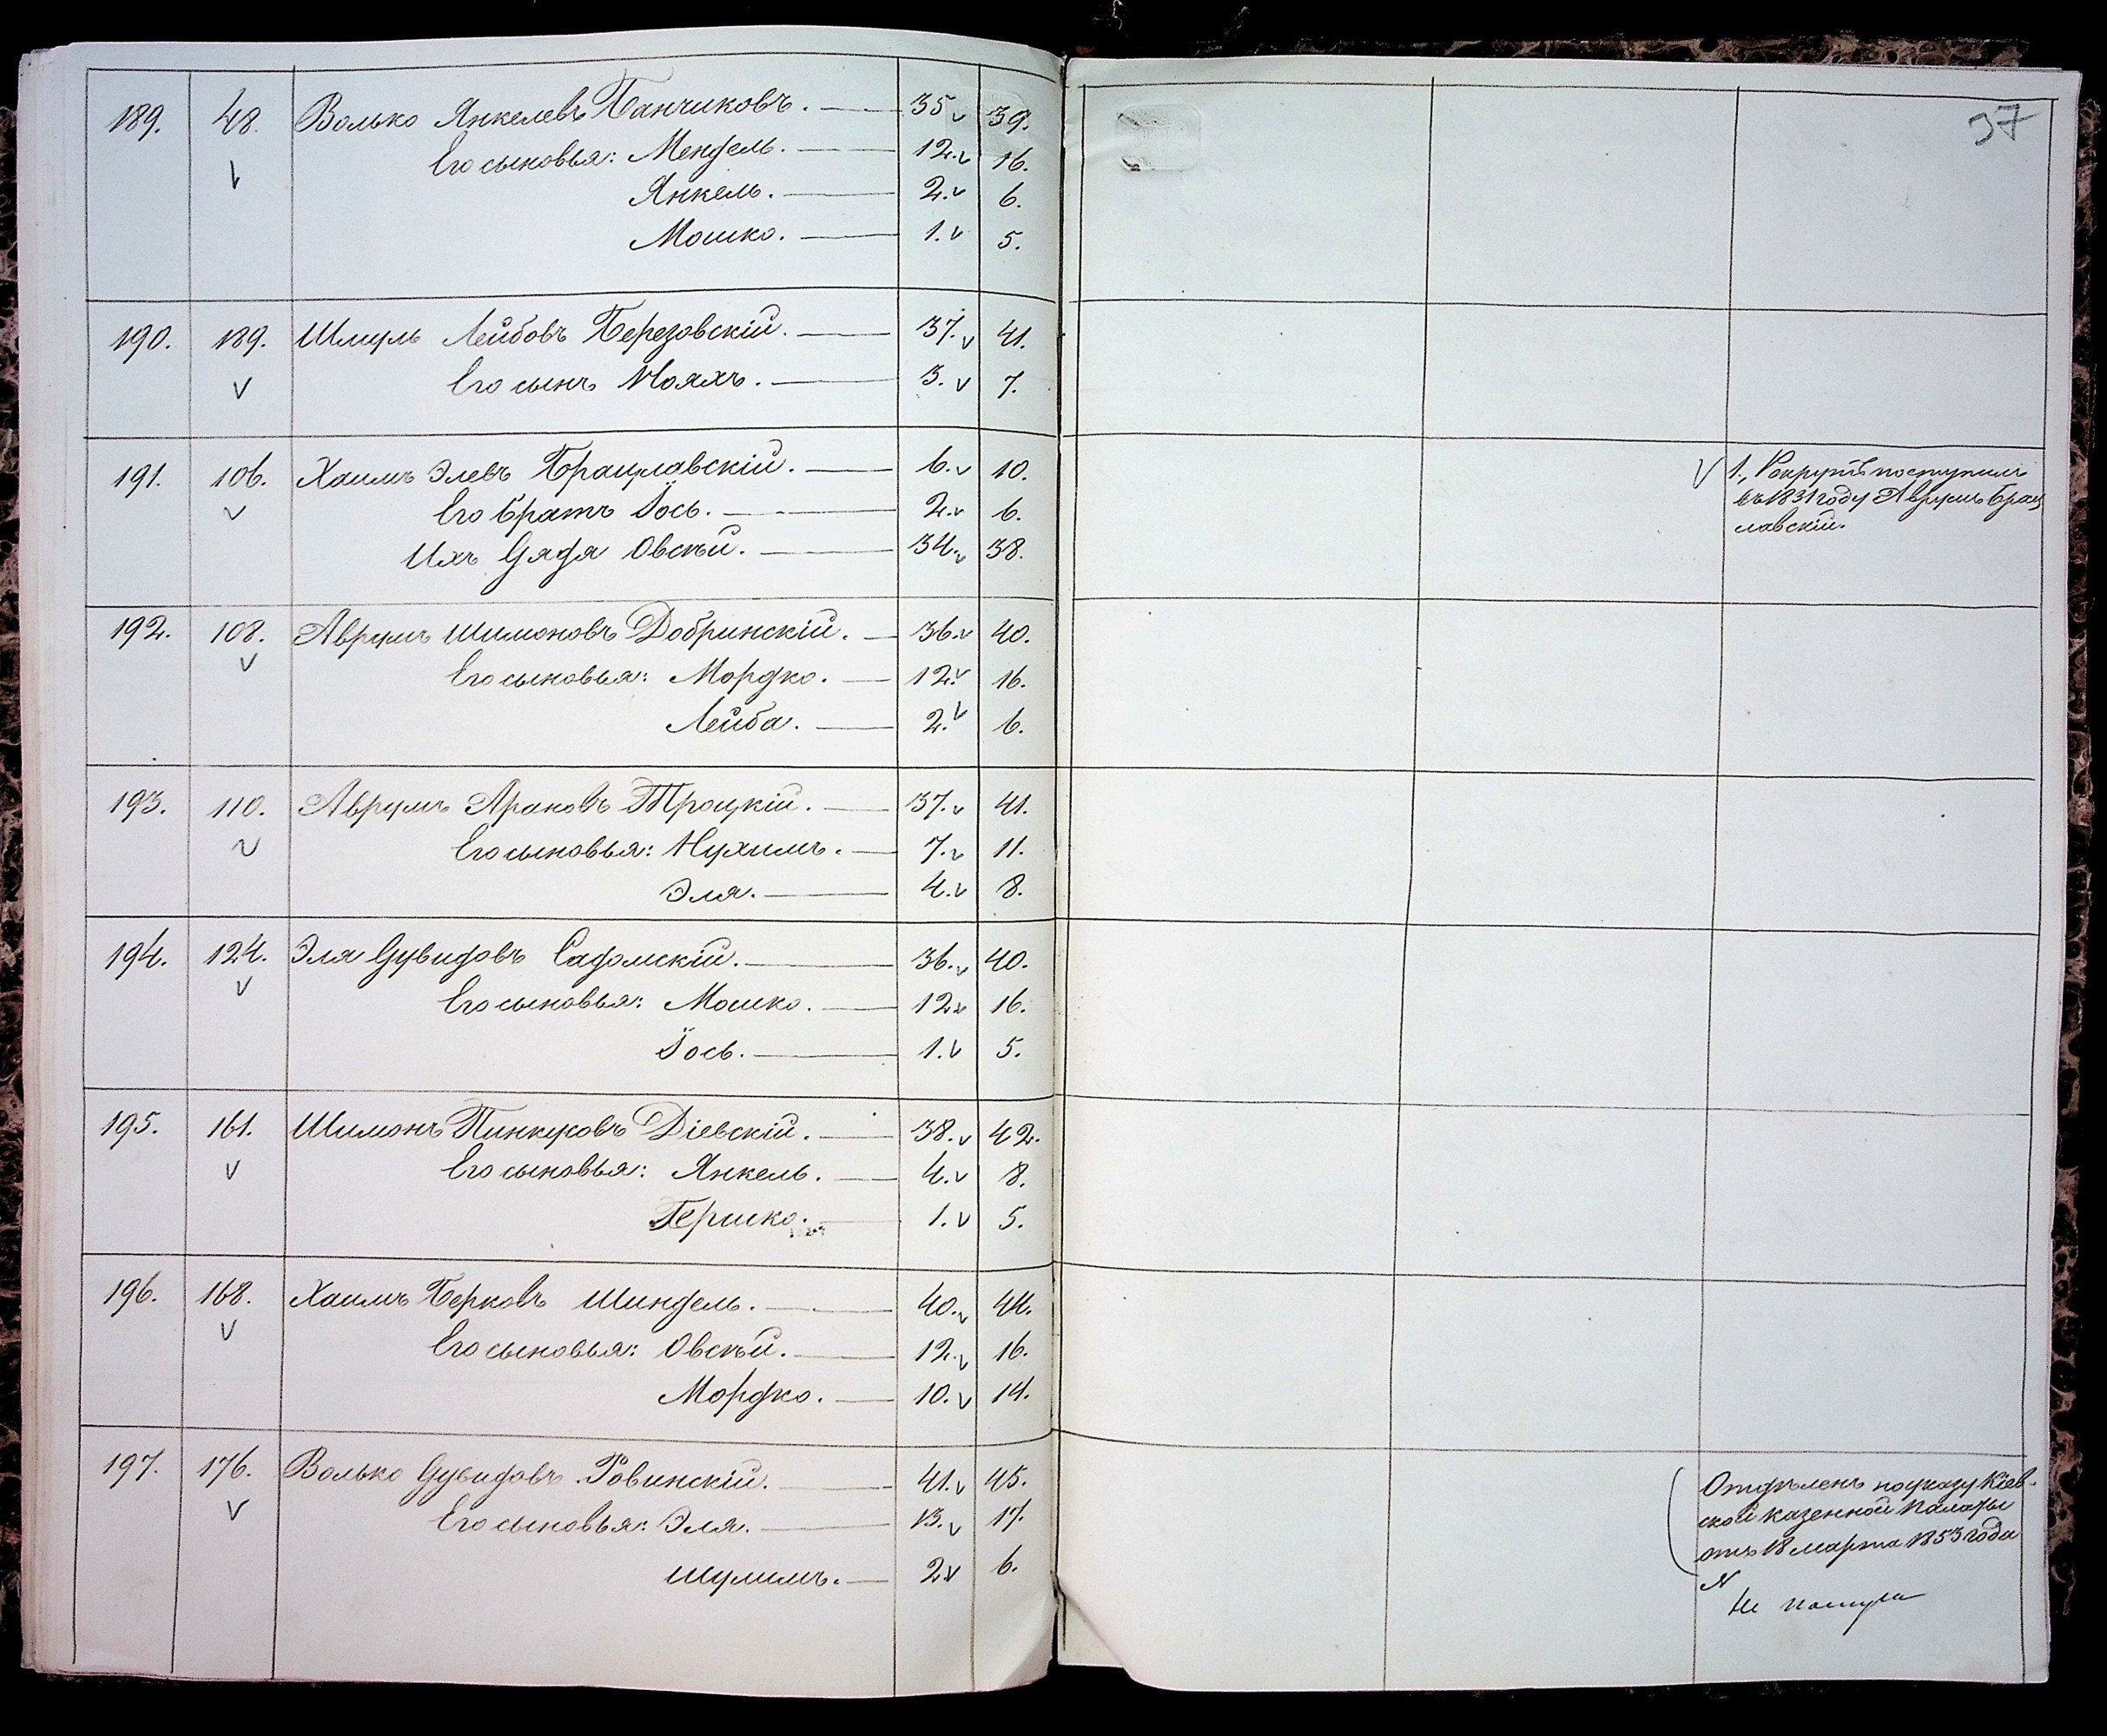 189. 48. Волько Янкелевъ Банчиковъ. 35 39.
Его сыновья: Мендель. 12. 16.
Янкель. 2. 6.
Мошко. 1. 5.
190. 189. Шмуль Лейбовъ Березовскій. 37. 41.
Его сынъ Нояхъ. 3. 7.
191. 106. Хаимъ Элевъ Брацлавскій. 6. 10.
Его братъ Іось. 2. 6.
Ихъ дядя Овсѣй. 34. 38.
192. 108. Аврумъ Шимоновъ Добринскій. 36. 40.
Его сыновья: Мордко. 12. 16.
Лейба. 2. 6.
193. 110. Аврумъ Ароновъ Троцкій. 37. 41.
Его сыновья: Нухимъ. 7. 11.
Эля. 4. 8.
194. 124. Эля Дувидовъ Садомскій. 36. 40.
Его сыновья: Мошко. 12 16.
Іось. 1. 5.
195. 161. Шимонъ Пинкусовъ Діевскій. 38. 42.
Его сыновья: Янкель. 4. 8.
Гершко. 1. 5.
196. 168. Хаимъ Берковъ Шиндель. 40. 44.
Его сыновья: Овсѣй. 12. 16.
Мордко. 10. 14.
197. 176. Волько Дувидовъ Ровинскій. 41. 45.
Его сыновья: Эля. 13. 17.
Шулимъ. 2 6.
37
1., Рекрутъ поступилъ
въ 1831 году Аврумъ Брац
лавскій.
Отдѣленъ по указу Кіев-
ской казенной Палаты
отъ 18 марта 1853 года
N
Не